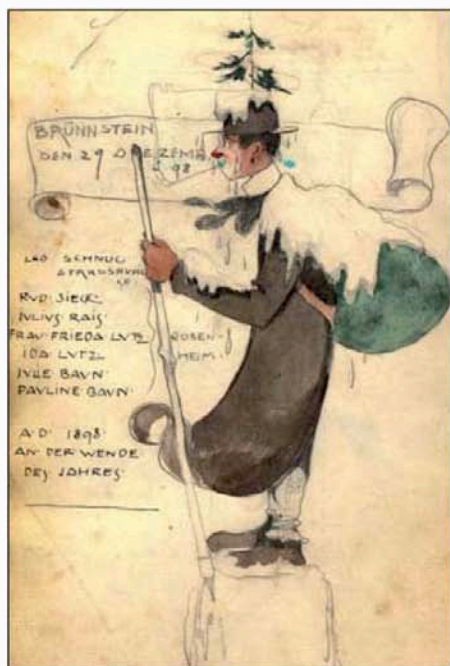 BRÜNNSTEIN
DEN 29 DEZEMB. 98
LEO SCHNUG
STRASSBURG
RVD. SIECK
IVLIVS. RAIS.
FRAV. FRIEDA. LVTZ ROSEN-
IDA. LVTZ HEIM.
IVLIE. BAVN.
PAVLINE. BAVN.
A. D. 1898.
AN. DER. WENDE
DES. JAHRES.